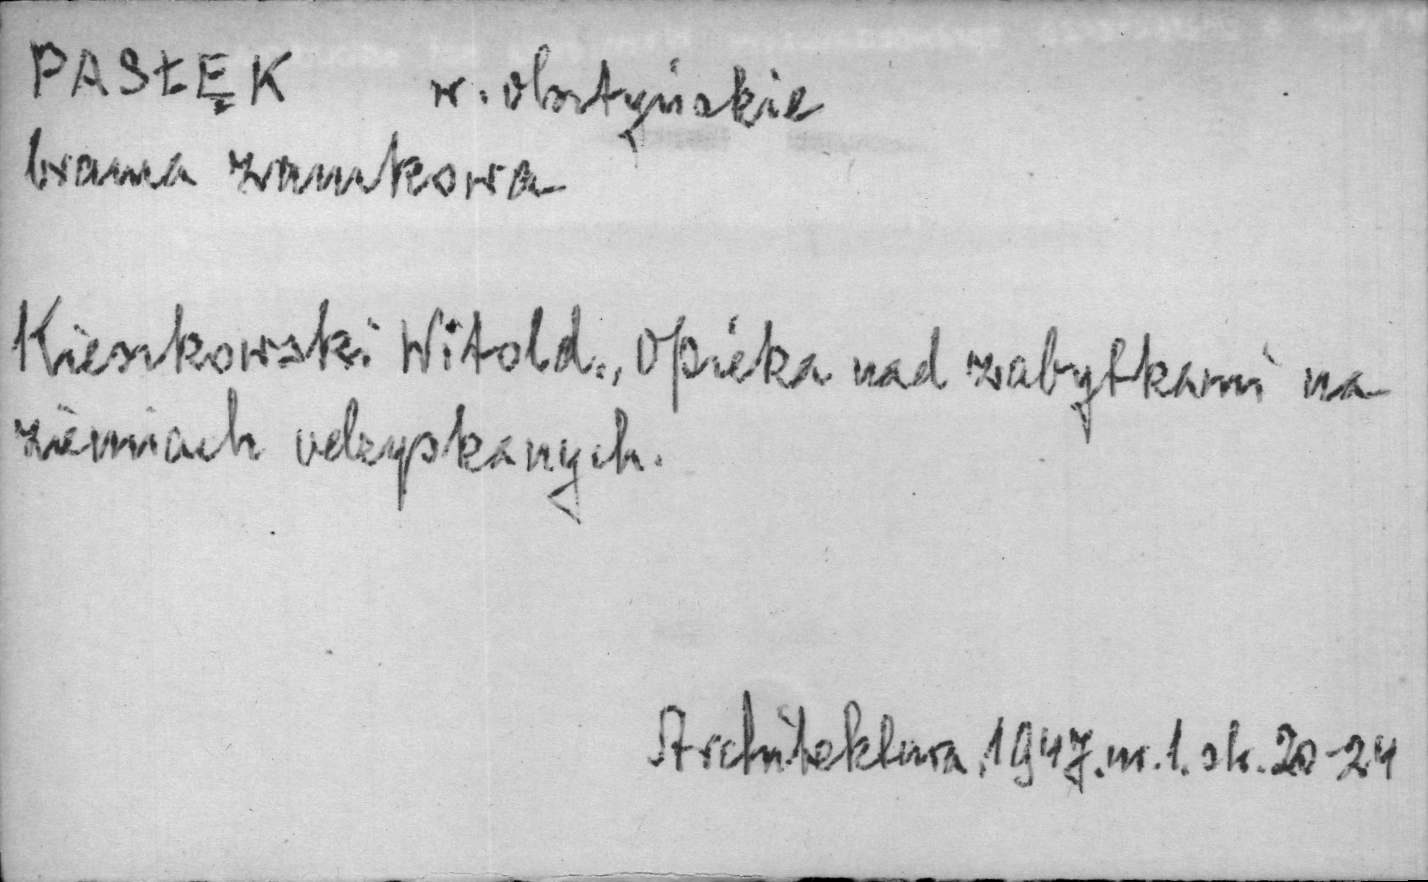 PASŁĘK w. olsztyńskie
brama zamkowa
Kieszkowski Witold., Opieka nad zabytkami na
ziemiach odzyskanych.
Architektura, 1947. nr. 1. str. 20-24